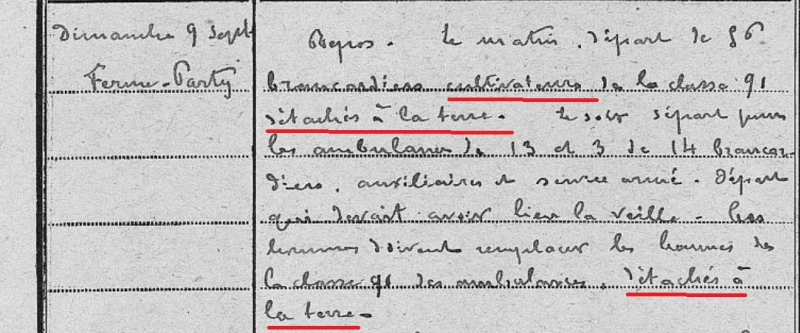 Dimanche 9 Sept
Ferme-Party
Repos. Le matin, départ de 56
brancardiers cultivateurs de la classe 91
détachés à la terre. Le soir départ pour
les ambulances de 13 et 3 de 14 brancar-
diers, auxiliaires et service armé. Départ
qui devait avoir lieu la veille. Les
hommes doivent remplacer les hommes de
la classe 91 des ambulances, détachés à
la terre.